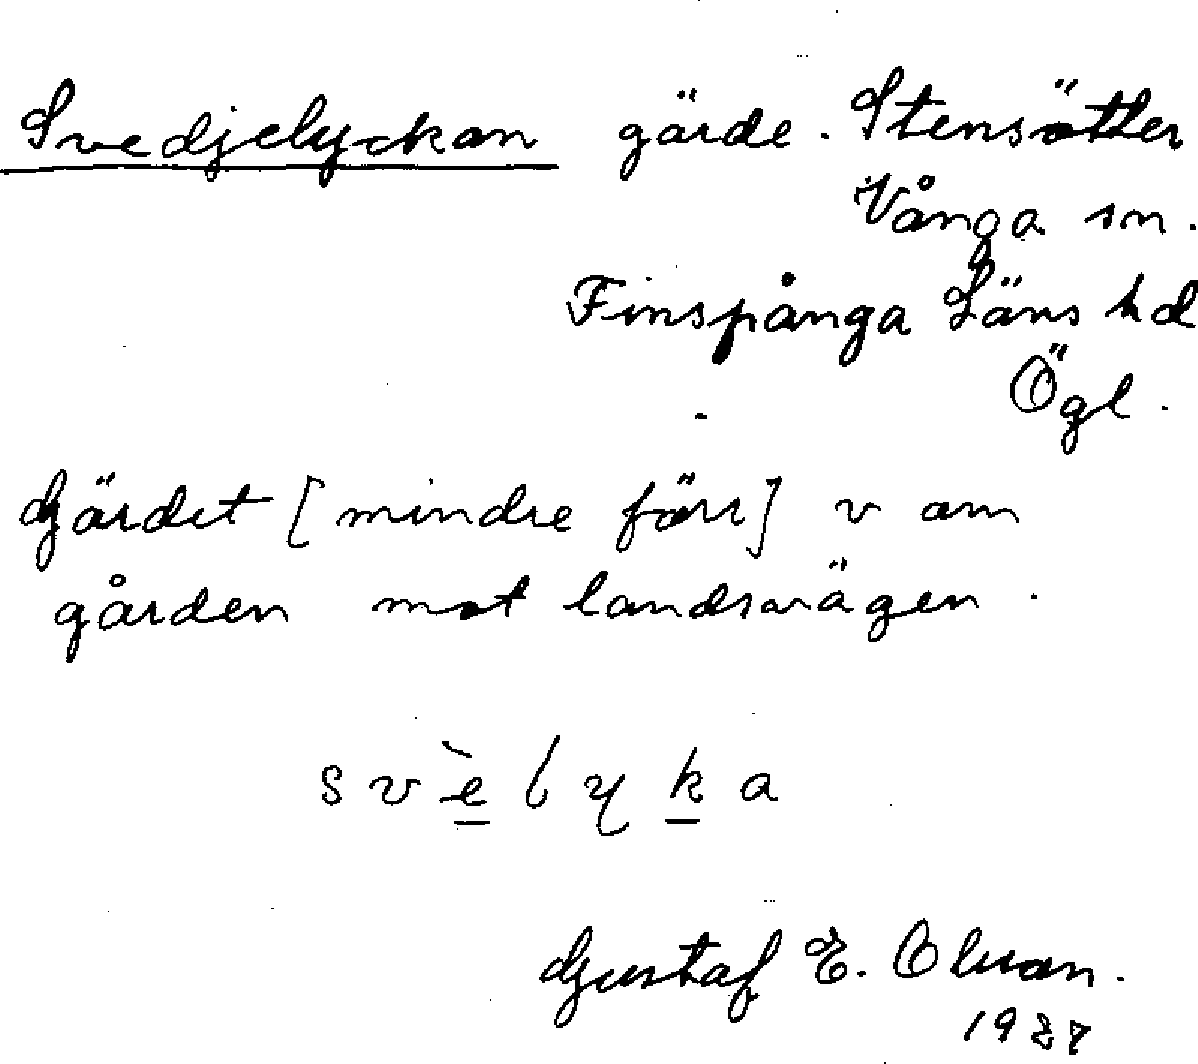 Svedjelyckan gärde. Stensätter
Vånga sn.
Finspånga Läns hd
Ögl.
Gärdet [mindre förr] v om
gården mot landsvägen.
s v è l y k a
Gustaf E. Olsson.